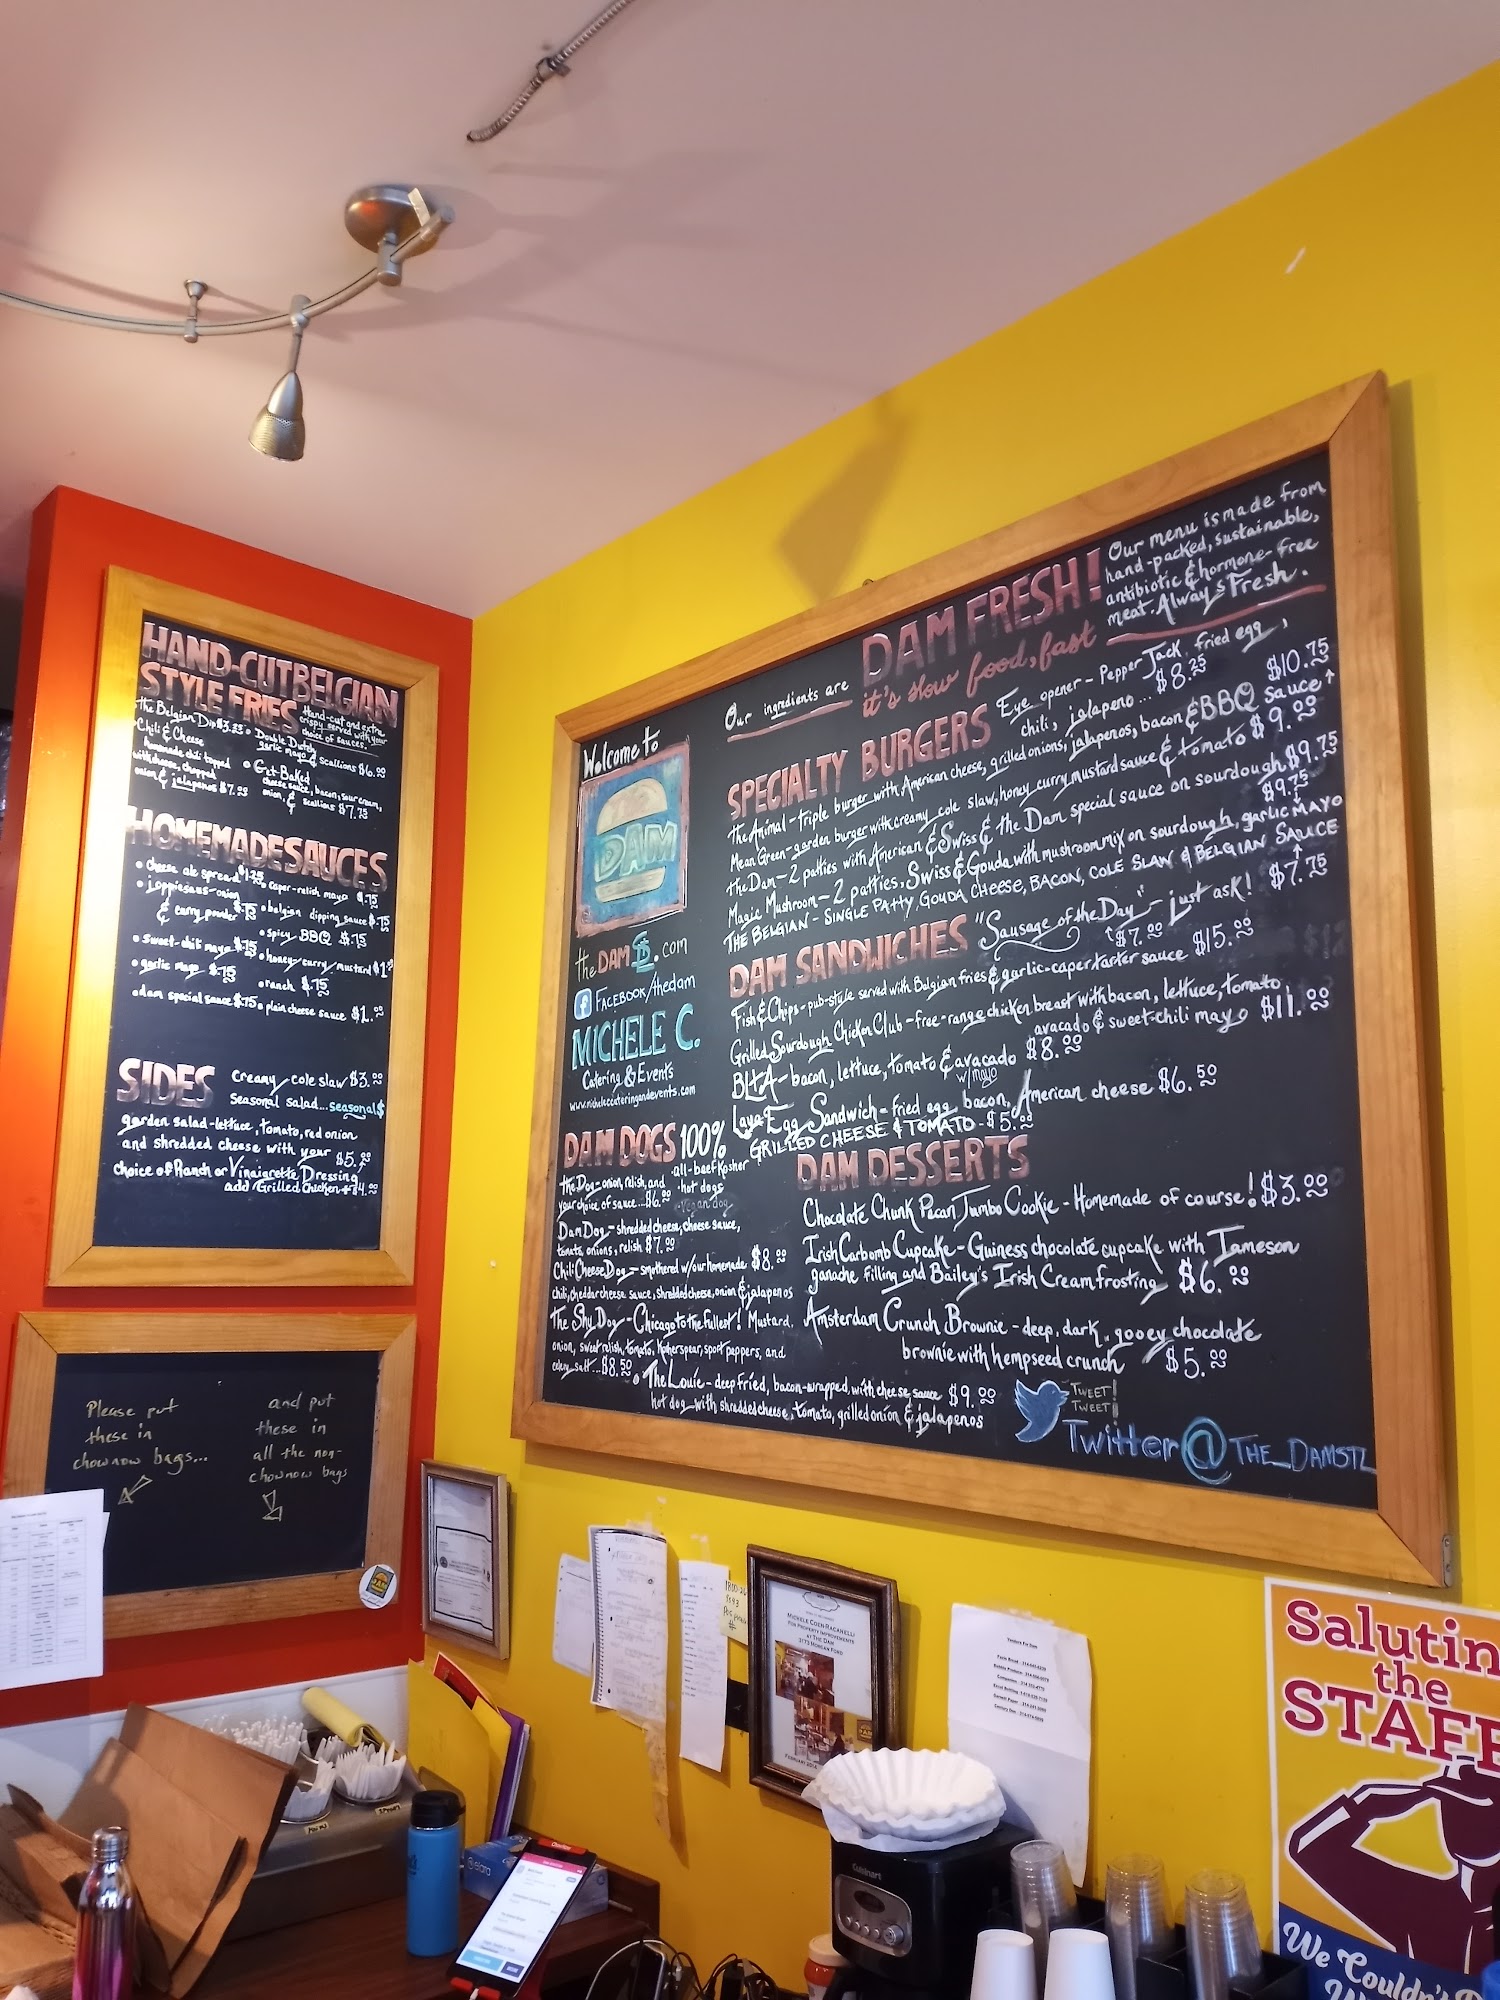 HAND-CUT BELGIAN
STYLE FRIES
Hand-cut and extra
crispy served with your
choice of sauces.
the Belgian Dip $3.25
Chili & Cheese
homemade chili topped
with cheese, chopped
onion & jalapenos $7.00
Double Dutch
garlic mayo & scallions $6.00
Get Baked
cheese sauce, bacon, sour cream,
onion, & scallions $7.75
HOMEMADE SAUCES
cheese ale spread $1.25
caper-relish mayo $.75
joppiesaus-onion
& curry powder $.75
belgian dipping sauce $.75
spicy BBQ $.75
sweet-chili mayo $.75
honey/curry/mustard $1.00
garlic mayo $.75
ranch $.75
dam special sauce $.75
plain cheese sauce $1.00
SIDES
Creamy cole slaw $3.00
Seasonal salad... seasonal $
garden salad-lettuce, tomato, red onion
and shredded cheese with your $5.00
choice of Ranch or Vinaigrette Dressing
add Grilled Chicken + $4.00
Please put
these in
chownow bags...
and put
these in
all the non-
chownow bags
Welcome to
DAM
the DAM STL.com
Facebook/thedam
MICHELE C.
Catering & Events
www.micheleccateringandevents.com
DAM DOGS 100%
all-beef Kosher
hot dogs
vegan dog
the Dog-onion, relish, and
your choice of sauce...$6.00
Dam Dog-shredded cheese, cheese sauce,
tomato, onions, relish $7.00
Chili Cheese Dog-smothered w/our homemade $8.00
chili, cheddar cheese sauce, shredded cheese, onion & jalapenos
The Shy Dog-Chicago to the fullest! Mustard,
onion, sweet relish, tomato, kosher spear, sport peppers, and
celery salt...$8.50
The Louie-deep fried, bacon-wrapped, with cheese sauce $9.00
hot dog with shredded cheese, tomato, grilled onion & jalapenos
Our ingredients are
DAM FRESH!
it's slow food, fast
Our menu is made from
hand-packed, sustainable,
antibiotic & hormone-free
meat. Always Fresh.
SPECIALTY BURGERS
Eye opener-Pepper Jack, fried egg,
chili, jalapeno...$8.25
the Animal-triple burger with American cheese, grilled onions, jalapenos, bacon & BBQ sauce $10.75
Mean Green-garden burger with creamy cole slaw, honey curry mustard sauce & tomato $9.00
the Dam-2 patties with American & Swiss & the Dam special sauce on sourdough $9.75
Magic Mushroom-2 patties, Swiss & Gouda with mushroom mix on sourdough, garlic mayo $9.75
THE BELGIAN-SINGLE PATTY, GOUDA CHEESE, BACON, COLE SLAW & BELGIAN SAUCE $7.75
DAM SANDWICHES
"Sausage of the Day"-just ask!
$7.00
Fish & Chips-pub-style served with Belgian fries & garlic-caper tarter sauce $15.00
Grilled Sourdough Chicken Club-free-range chicken breast with bacon, lettuce, tomato,
avocado & sweet-chili mayo $11.00
BLTA-bacon, lettuce, tomato & avacado $8.00
w/mayo
Laya-Egg Sandwich-fried egg, bacon, American cheese $6.50
GRILLED CHEESE & TOMATO-$5.00
DAM DESSERTS
Chocolate Chunk Pecan Jumbo Cookie-Homemade of course! $3.00
Irish Carbomb Cupcake-Guiness chocolate cupcake with Jameson
ganache filling and Bailey's Irish Cream frosting $6.00
Amsterdam Crunch Brownie-deep, dark, gooey chocolate
brownie with hempseed crunch $5.00
TWEET!
TWEET!
Twitter@THE_DAMSTL
MICHELE COEN RACANELLI
FOR PROPERTY IMPROVEMENTS
AT THE DAM
3173 MORGAN FORD
FEBRUARY 2014
Vendors For Dam
Salutin
the
STAFF
We Couldn't
Cuisinart
elara